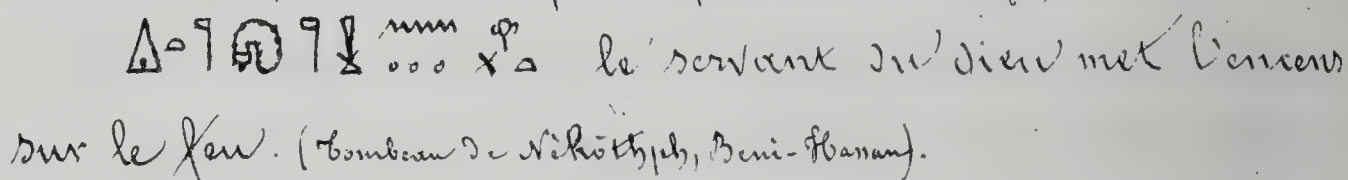 le servant du dieu met l'encens
sur le feu. (Tombeau de Néhôthph, Beni-Hassan).